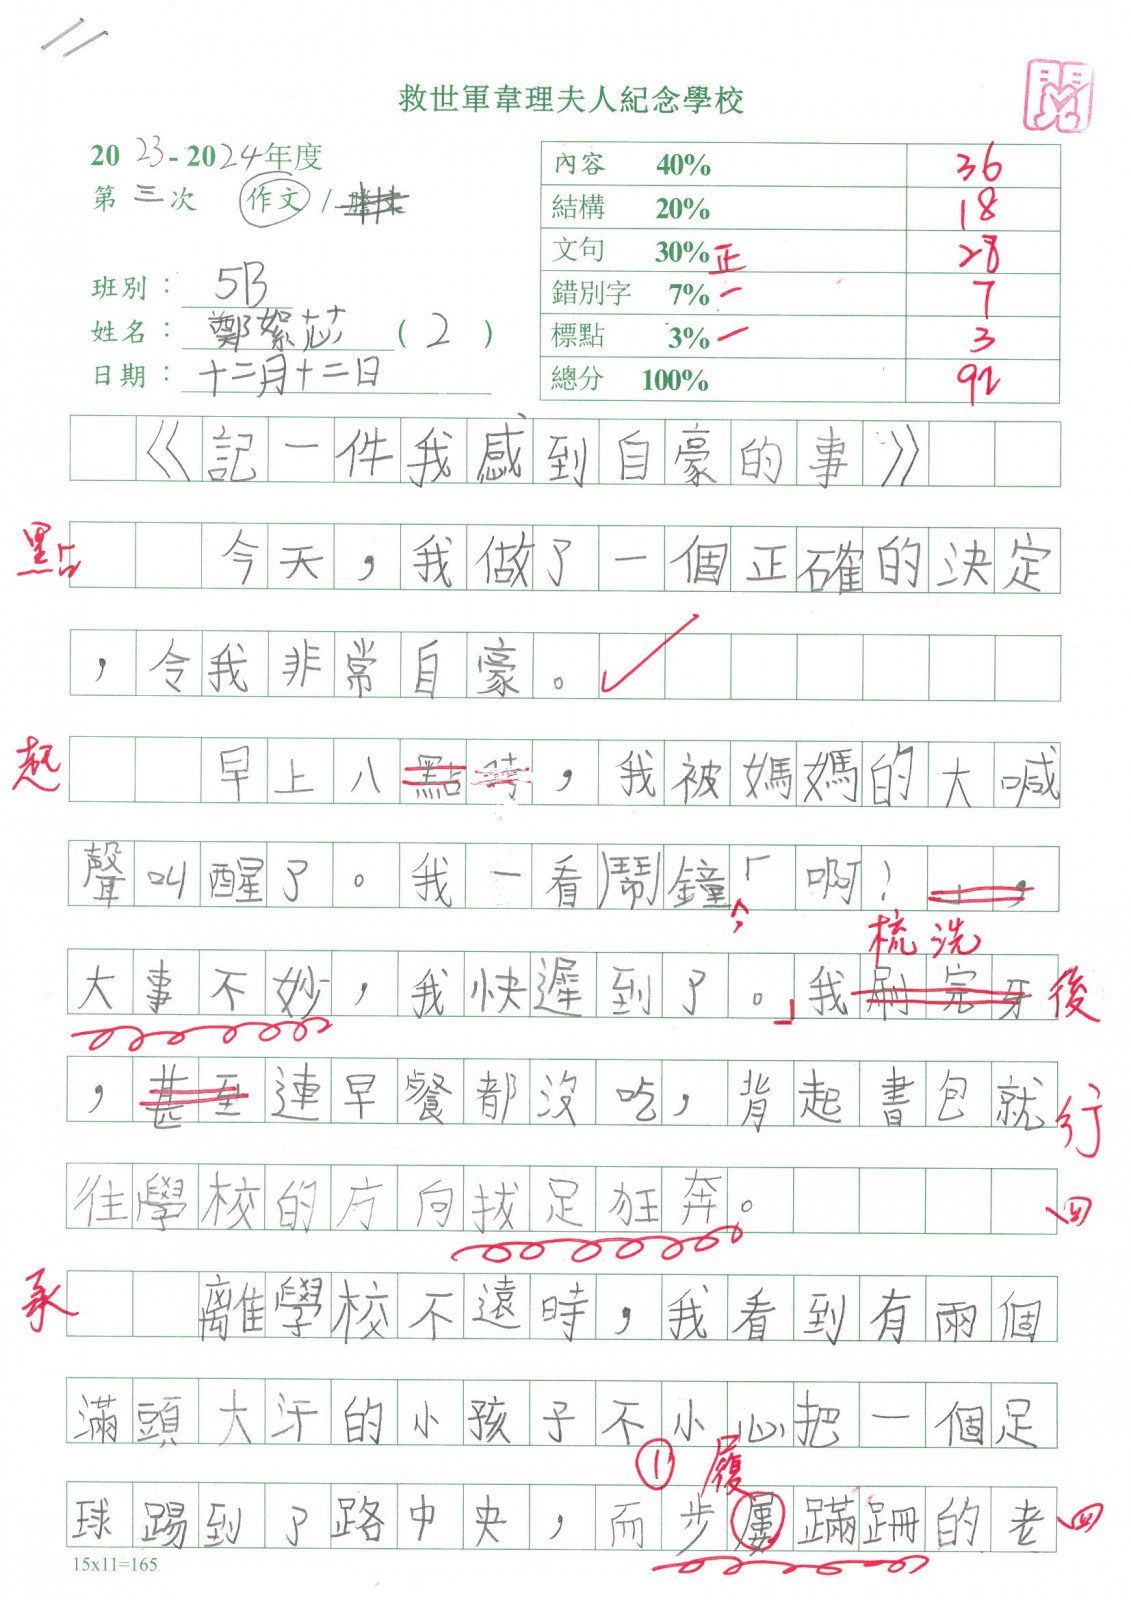 救世軍韋理夫人紀念學校
閱
2023-2024年度
第三次 作文/謄文
班別：5B
姓名：鄭絮芯(2)
日期：十二月十二日
內容 40% 36
結構 20% 18
文句 30% 正 28
錯別字 7% 一 7
標點 3% 一 3
總分 100% 92
《記一件我感到自豪的事》
點 今天，我做了一個正確的決定
，令我非常自豪。
起 早上八點時，我被媽媽的大喊
聲叫醒了。我一看鬧鐘，「啊！」，
梳洗
大事不妙，我快遲到了。」我刷完牙後
，甚至連早餐都沒吃，背起書包就行
往學校的方向拔足狂奔。
承 離學校不遠時，我看到有兩個
滿頭大汗的小孩子不小心把一個足
① 履
球踢到了路中央，而步屨蹣跚的老
15x11=165